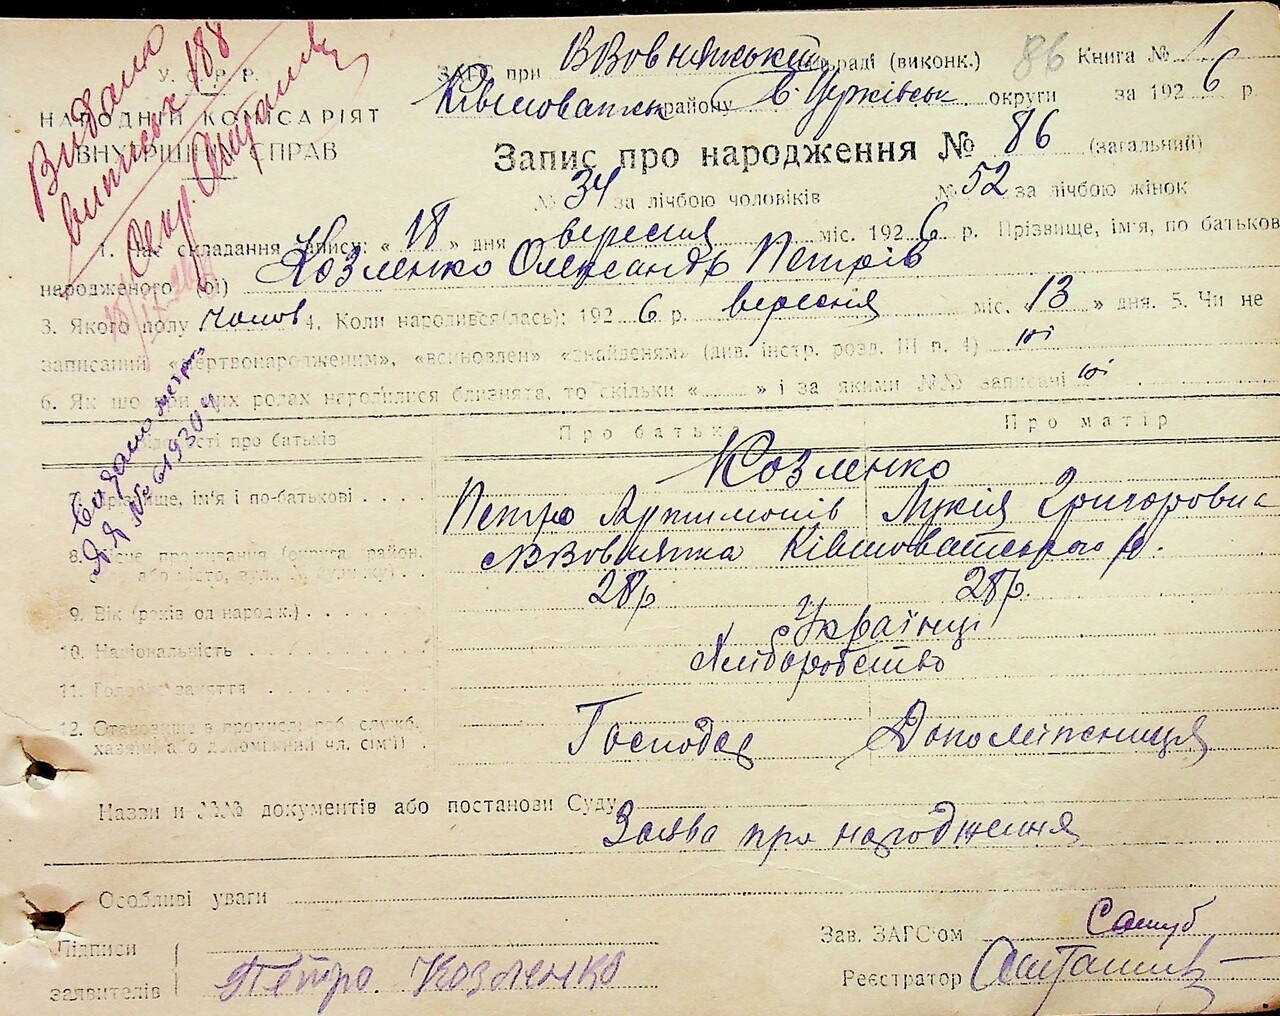 Видано
випись 188
У. С. Р. Р.
НАРОДНІЙ КОМІСАРІЯТ
ВНУТРІШНІХ СПРАВ
ЗАГС при ВВовнянській сільраді (виконк.) 86 Книга № 1
Ківшоватськ району Б-Церківськ округи за 1926 р.
Запис про народження № 86 (загальний)
№ 34 за лічбою чоловіків № 52 за лічбою жінок
1. Час складання запису: « 18 » дня вересня міс. 1926 р. Прізвище, ім'я, по батькові
народженого (ої) Козленко Олександр Петрів
3. Якого полу чолов 4. Коли народився(лась): 1926 р. вересня міс. 13 » дня. 5. Чи не
записаний «мертвонародженим», «всиновлен» «знайденям» (див. інстр. розд. III п. 4) ні
6. Як що при цих родах народилися близнята, то скільки « » і за якими №№ записані ні
Видано метрику
№ 6 1930 р
Відомості про батьків Про батька Про матір
Козленко
7. Прізвище, ім'я і по-батькові Петро Артимонів Лукія Григоровна
8. Місце проживання (округа, район, с ВВовнянка Ківшоватського р.
або місто, вул.
9. Вік (років од народж.) 28р 28р.
10. Національність Українці
11. Головне заняття Хліборобство
12. Становище в промислі (роб. служб. Господар Допоміжниця
хазяїн або допоміжний чл. сім'ї)
Назви и №№ документів або постанови Суду Заява про народження
Особливі уваги
Підписи Зав. ЗАГС'ом
заявителів Петро Козленко Реєстратор